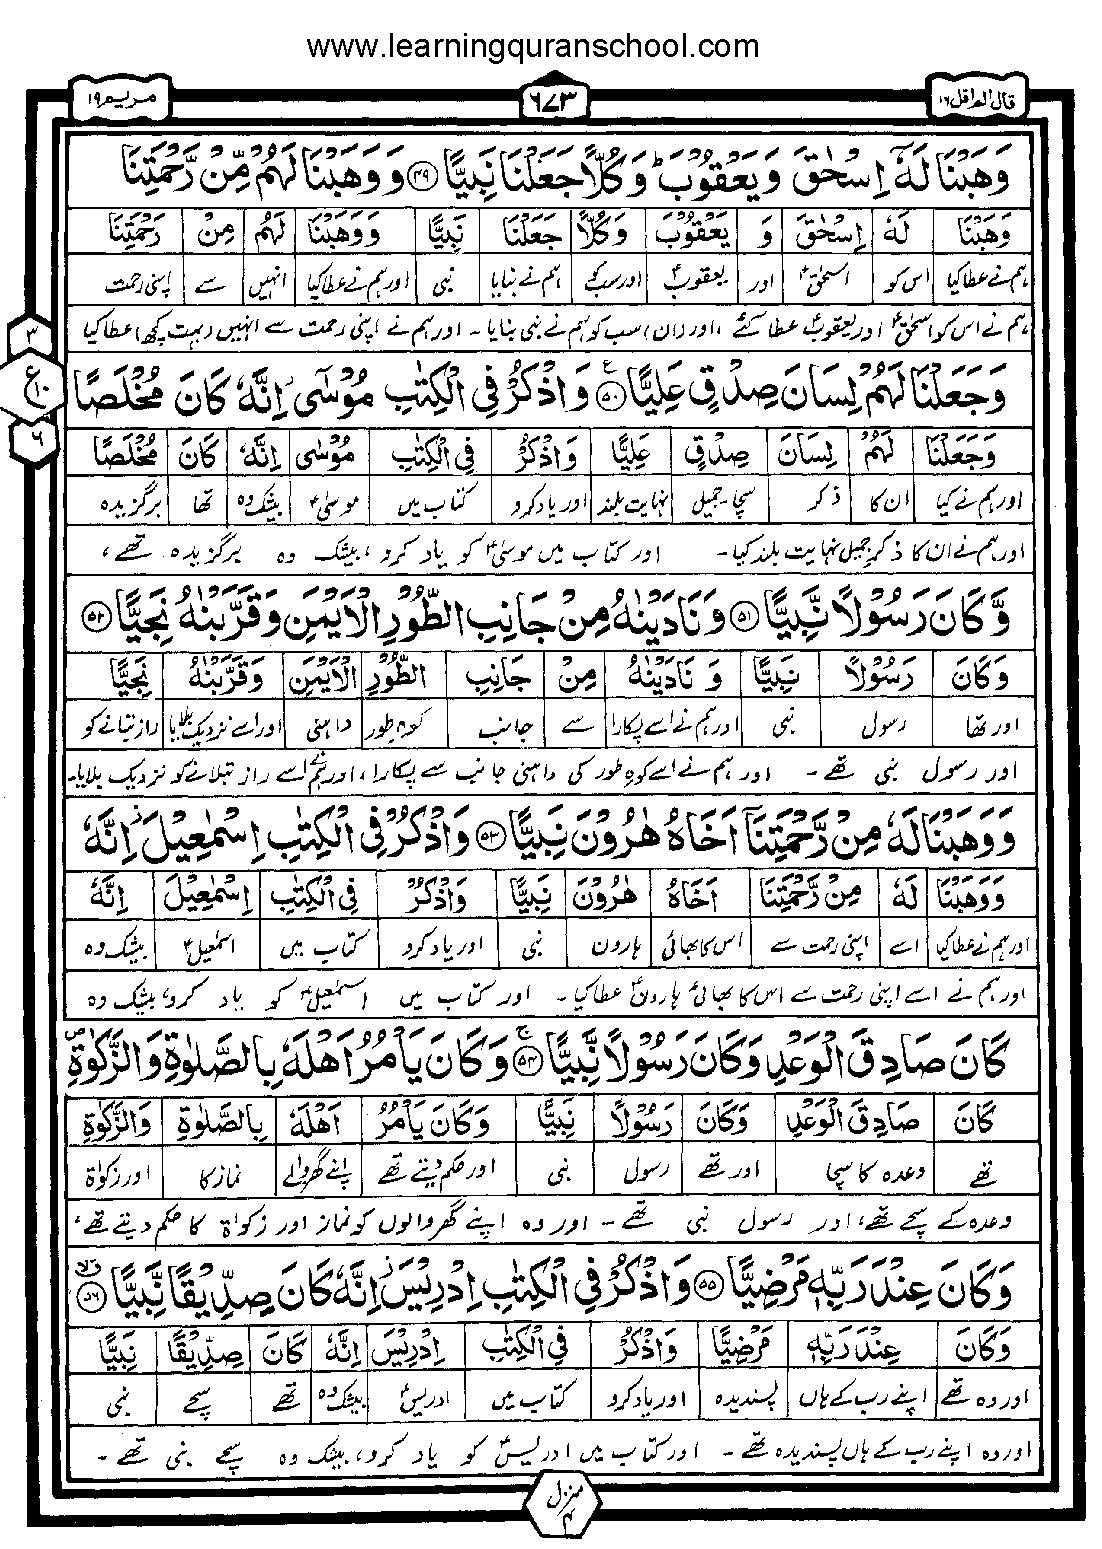 www.learningquranschool.com
قال الم اقل ١٦
٦٧٣
مریم ١٩
وَهَبْنَا لَهٗٓ اِسْحٰقَ وَ يَعْقُوْبَ ؕ وَ كُلًّا جَعَلْنَا نَبِيًّا ﴿۴۹﴾ وَ وَهَبْنَا لَهُمْ مِّنْ رَّحْمَتِنَا
وَهَبْنَا لَهٗٓ اِسْحٰقَ وَ يَعْقُوْبَ وَكُلًّا جَعَلْنَا نَبِيًّا وَوَهَبْنَا لَهُمْ مِنْ رَحْمَتِنَا
ہم نے عطا کیا اس کو اسحٰقؑ اور یعقوبؑ اور سب کو ہم نے بنایا نبی اور ہم نے عطا کیا انہیں سے اپنی رحمت
ہم نے اس کو اسحٰقؑ اور یعقوبؑ عطا کئے، اور (ان) سب کو ہم نے نبی بنایا ۔ اور ہم نے اپنی رحمت سے انہیں (بہت کچھ) عطا کیا
٣
ع ١٠
٦
وَ جَعَلْنَا لَهُمْ لِسَانَ صِدْقٍ عَلِيًّا ﴿۵۰﴾ ع وَ اذْكُرْ فِي الْكِتٰبِ مُوْسٰٓى ز اِنَّهٗ كَانَ مُخْلَصًا
وَجَعَلْنَا لَهُمْ لِسَانَ صِدْقٍ عَلِيًّا وَاذْكُرْ فِي الْكِتٰبِ مُوْسٰى اِنَّهٗ كَانَ مُخْلَصًا
اور ہم نے کیا ان کا ذکر سچا۔جمیل نہایت بلند اور یاد کرو کتاب میں موسیٰؑ بیشک وہ تھا برگزیدہ
اور ہم نے ان کا ذکرِ جمیل نہایت بلند کیا ۔ اور کتاب میں موسیٰؑ کو یاد کرو ، بیشک وہ برگزیدہ تھے ،
وَّ كَانَ رَسُوْلًا نَّبِيًّا ﴿۵۱﴾ وَ نَادَيْنٰهُ مِنْ جَانِبِ الطُّوْرِ الْاَيْمَنِ وَ قَرَّبْنٰهُ نَجِيًّا ﴿۵۲﴾
وَكَانَ رَسُوْلًا نَبِيًّا وَ نَادَيْنٰهُ مِنْ جَانِبِ الطُّوْرِ الْاَيْمَنِ وَقَرَّبْنٰهُ نَجِيًّا
اور تھا رسول نبی اور ہم نے اسے پکارا سے جانب کوہ طور داہنی اور اسے نزدیک بلایا راز بتانے کو
اور رسول نبی تھے ۔ اور ہم نے اسے کوہِ طور کی داہنی جانب سے پکارا ، اور ہم نے اسے راز بتلانے کو نزدیک بلایا۔
وَ وَهَبْنَا لَهٗ مِنْ رَّحْمَتِنَآ اَخَاهُ هٰرُوْنَ نَبِيًّا ﴿۵۳﴾ وَ اذْكُرْ فِي الْكِتٰبِ اِسْمٰعِيْلَ ز اِنَّهٗ
وَوَهَبْنَا لَهٗ مِنْ رَّحْمَتِنَا اَخَاهُ هٰرُوْنَ نَبِيًّا وَاذْكُرْ فِي الْكِتٰبِ اِسْمٰعِيْلَ اِنَّهٗ
اور ہم نے عطا کیا اسے اپنی رحمت سے اس کا بھائی ہارون نبی اور یاد کرو کتاب میں اسمٰعیلؑ بیشک وہ
اور ہم نے اسے اپنی رحمت سے اس کا بھائی ہارونؑ عطا کیا ۔ اور کتاب میں اسمٰعیلؑ کو یاد کرو ، بیشک وہ
كَانَ صَادِقَ الْوَعْدِ وَ كَانَ رَسُوْلًا نَّبِيًّا ﴿۵۴﴾ ج وَ كَانَ يَاْمُرُ اَهْلَهٗ بِالصَّلٰوةِ وَ الزَّكٰوةِ ص
كَانَ صَادِقَ الْوَعْدِ وَكَانَ رَسُوْلًا نَبِيًّا وَكَانَ يَاْمُرُ اَهْلَهٗ بِالصَّلٰوةِ وَالزَّكٰوةِ
تھے وعدہ کا سچا اور تھے رسول نبی اور حکم دیتے تھے اپنے گھر والے نماز کا اور زکوٰۃ
وعدہ کے سچے تھے ، اور رسول نبی تھے ۔ اور وہ اپنے گھر والوں کو نماز اور زکوٰۃ کا حکم دیتے تھے ،
وَ كَانَ عِنْدَ رَبِّهٖ مَرْضِيًّا ﴿۵۵﴾ وَ اذْكُرْ فِي الْكِتٰبِ اِدْرِيْسَ ز اِنَّهٗ كَانَ صِدِّيْقًا نَّبِيًّا ﴿۵۶﴾ ق لا
وَكَانَ عِنْدَ رَبِّهٖ مَرْضِيًّا وَاذْكُرْ فِي الْكِتٰبِ اِدْرِيْسَ اِنَّهٗ كَانَ صِدِّيْقًا نَبِيًّا
اور وہ تھے اپنے رب کے ہاں پسندیدہ اور یاد کرو کتاب میں ادریسؑ بیشک وہ تھے سچے نبی
اور وہ اپنے رب کے ہاں پسندیدہ تھے ۔ اور کتاب میں ادریسؑ کو یاد کرو ، بیشک وہ سچے نبی تھے ۔
منزل ۴